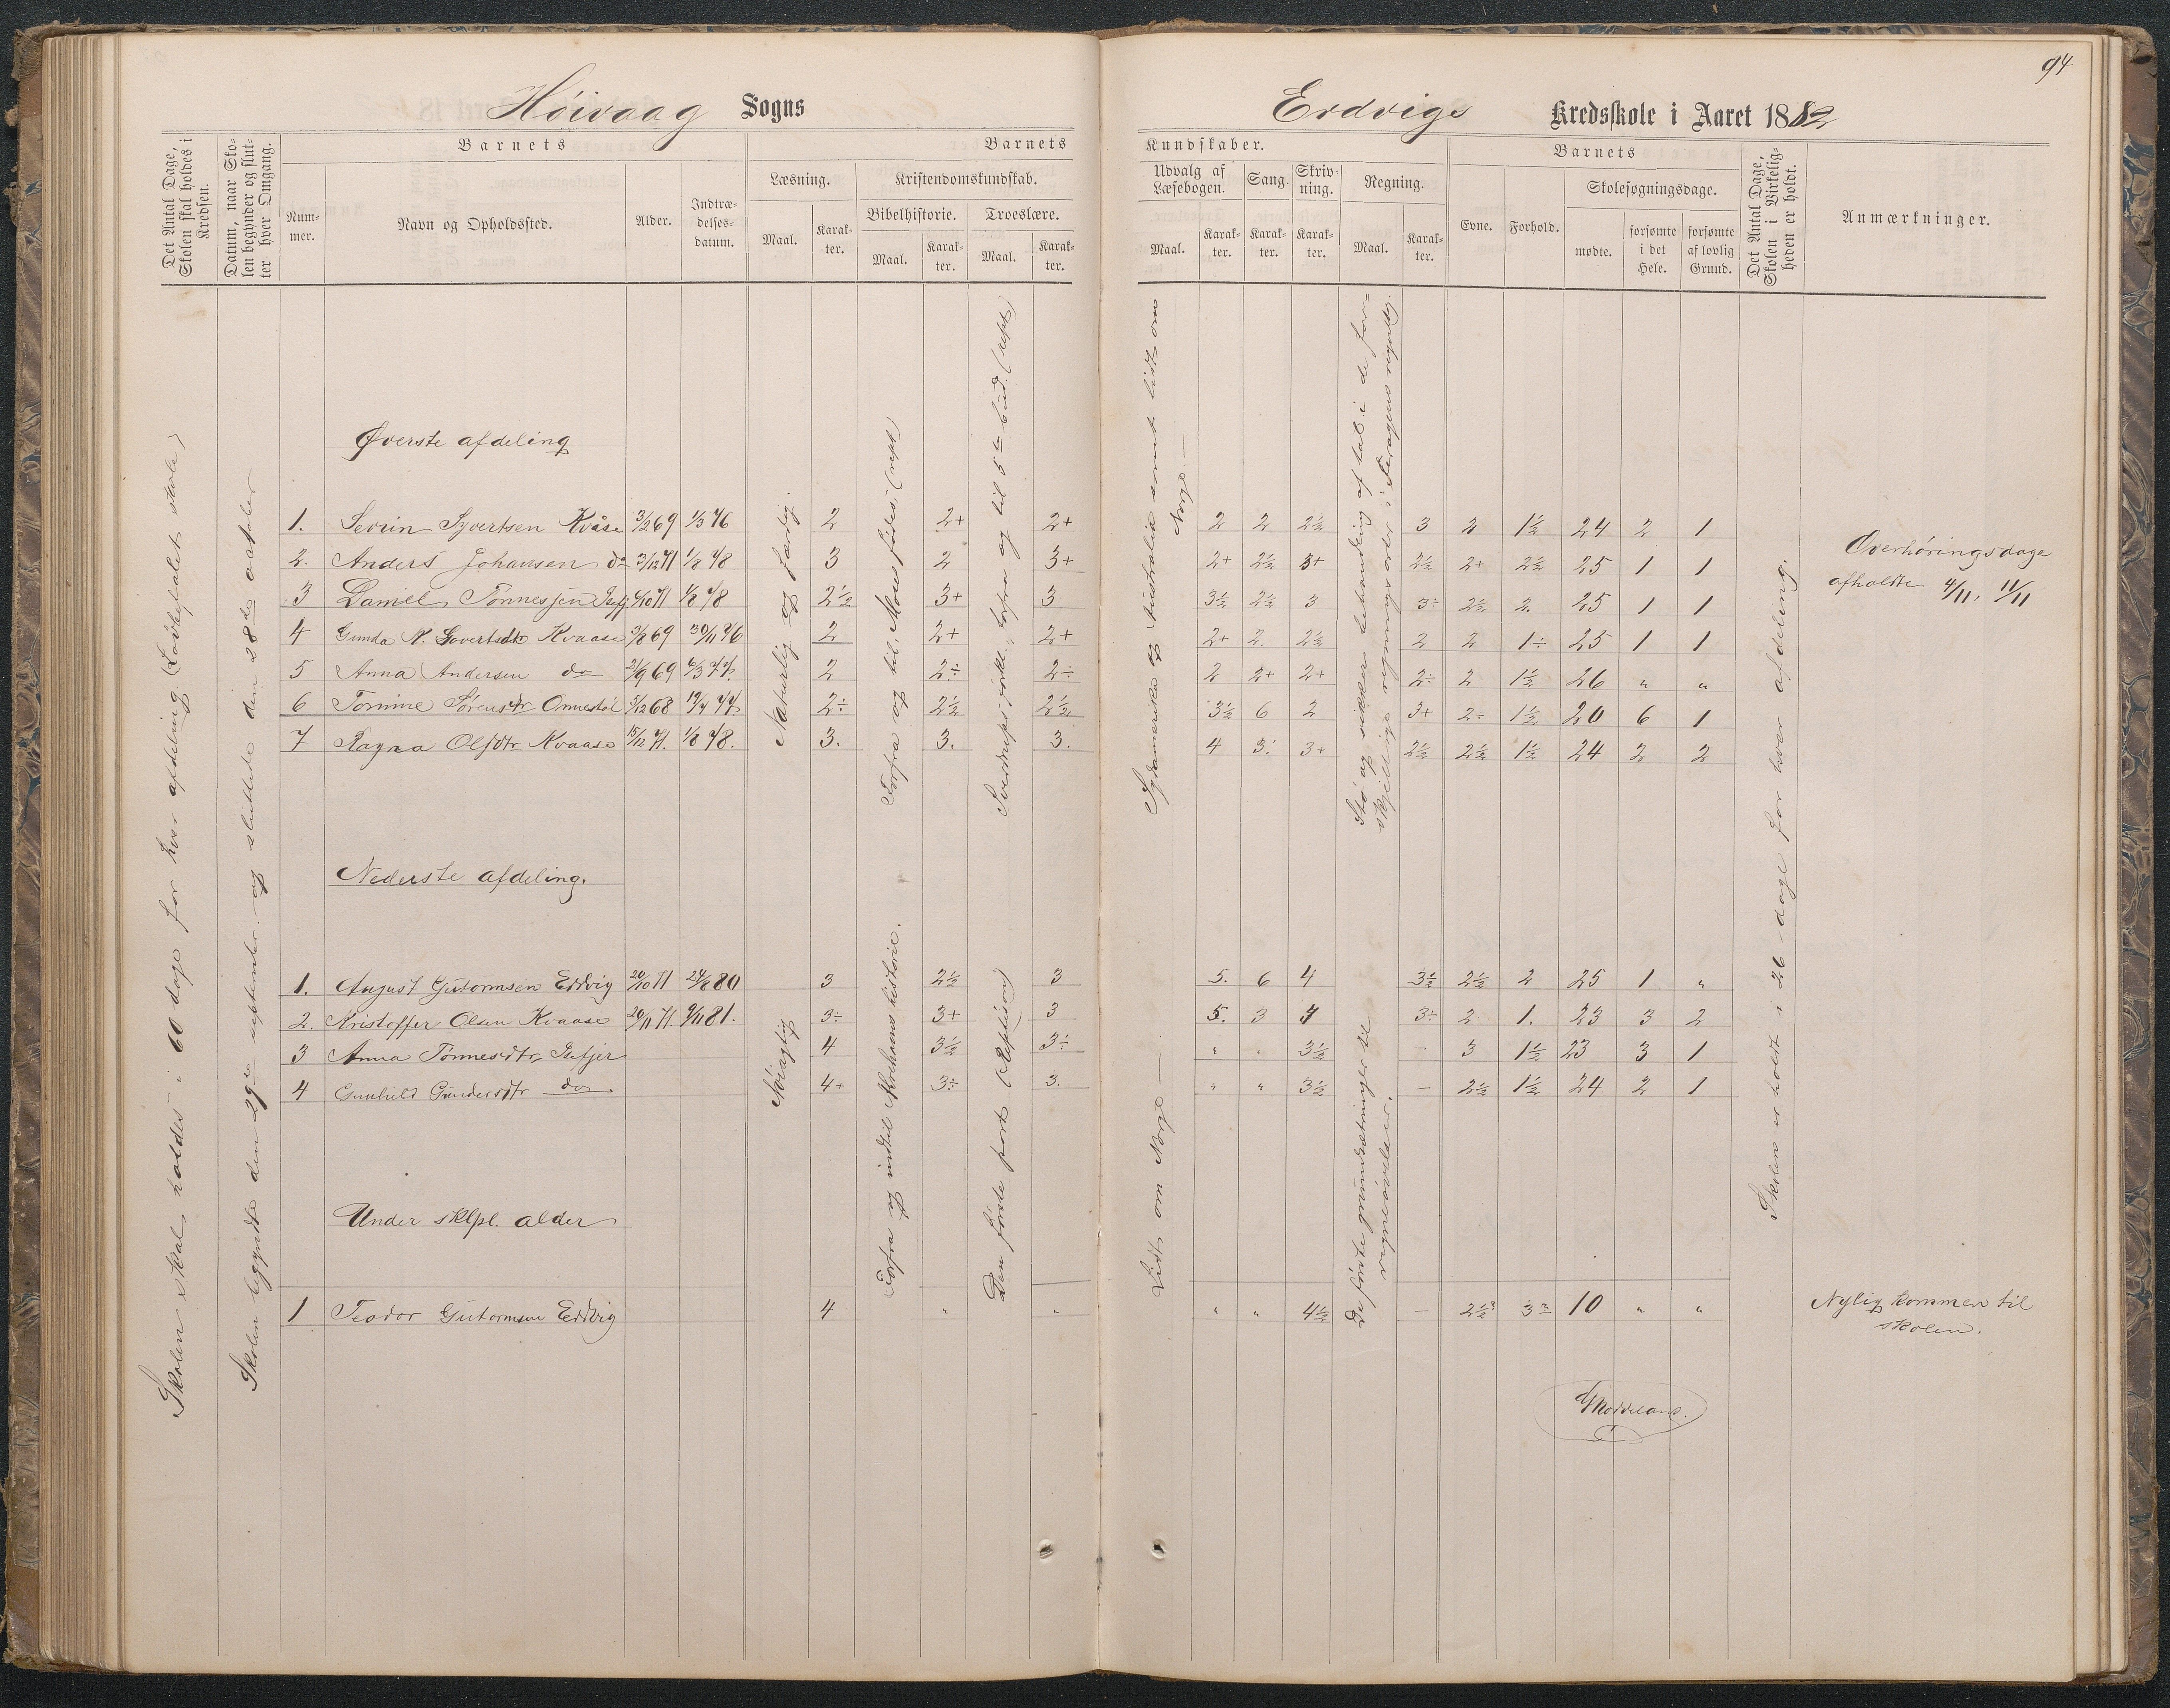 94
Høivaag Sogns
Erdvigs Kredsskole i Aaret 1882
Det Antal Dage, Skolen skal holdes i Kredsen.
Datum, naar Skolen begynder og slutter hver Omgang.
Barnets
Nummer.
Navn og Opholdssted.
Alder.
Indtrædelsesdatum.
Barnets
Læsning.
Maal.
Karakter.
Kristendomskundskab.
Bibelhistorie.
Maal.
Karakter.
Troeslære.
Maal.
Karakter.
Kundskaber.
Udvalg af Læsebogen.
Maal.
Karakter.
Sang.
Karakter.
Skrivning.
Karakter.
Regning.
Maal.
Karakter.
Barnets
Evne.
Forhold.
Skolesøgningsdage.
mødte.
forsømte i det Hele.
forsømte af lovlig Grund.
Det Antal Dage, Skolen i Virkeligheden er holdt.
Anmærkninger.
Skolen skal holdes i 60 dage for hver afdeling (Lovbefalet skole)
Skolen begyndte den 29de september og sluttede den 28de october
Øverste afdeling
Naturlig og færdig.
Forfra og til „Moses fødes“, (rept)
Sverdrups forkl., forfra og til 5te bud. (rept)
Sydamerika og Australia samt lidt om Norge.
Stø og sikker behandling af tal i de forskjellige regningsarter i Feragens regnebog.
Skolen er holdt i 26 dage for hver afdeling.
1. Sevrin Syvertsen Kvåse 3/2 69 1/3 76 2 2+ 2+ 2 2 2½ 3 2 1½ 24 2 1
2. Anders Johansen do 3/12 71 1/8 78 3 2 3+ 2+ 2½ 3+ 2½ 2+ 2½ 25 1 1
Overhøringsdage afholdte 4/11, 11/11
3 Daniel Tønnessen 4/10 71 1/8 78 2½ 3+ 3 3½ 2½ 3 3÷ 2½ 2. 25 1 1
4 Gunda N. Syvertsdtr Kvaase 3/8 69 30/11 76 2 2+ 2+ 2+ 2. 2½ 2 2 1÷ 25 1 1
5 Anna Andersen do 21/9 69 6/3 77. 2 2÷ 2÷ 2 2+ 2+ 2÷ 2 1½ 26 " "
6 Tomine Sørensdtr Omrestøl 5/12 68 19/4 77 2÷ 2½ 2½ 3½ 6 2 3+ 2÷ 1½ 20 6 1
7 Ragna Olsdtr Kvaase 15/12 71. 1/8 78. 3. 3. 3. 4 3. 3+ 2½ 2½ 1½ 24 2 2
Nederste afdeling.
Nøiagtig
Forfra og indtil Abrahams historie.
Den første part (Repetition)
Lidt om Norge
De første grundsætninger til regneøvelser.
1. August Gutormsen Erdvig 20/10 71 24/8 80 3 2½ 3 5. 6 4 3½ 2½ 2 25 1 "
2. Kristoffer Olsen Kvaase 20/11 71. 9/11 81. 3÷ 3+ 3 5. 3 4 3÷ 2 1. 23 3 2
3 Anna Tønnesdtr, Isefjer 4 3½ 3÷ " " 3½ – 3 1½ 23 3 1
4 Gunhild Gundersdtr do 4+ 3÷ 3. " " 3½ – 2½ 1½ 24 2 1
Under sklpl. alder
1 Teodor Gutormsen Erdvig 4 " " " " 4½ – 2½? 3? 10 " "
Nylig kommen til skolen.